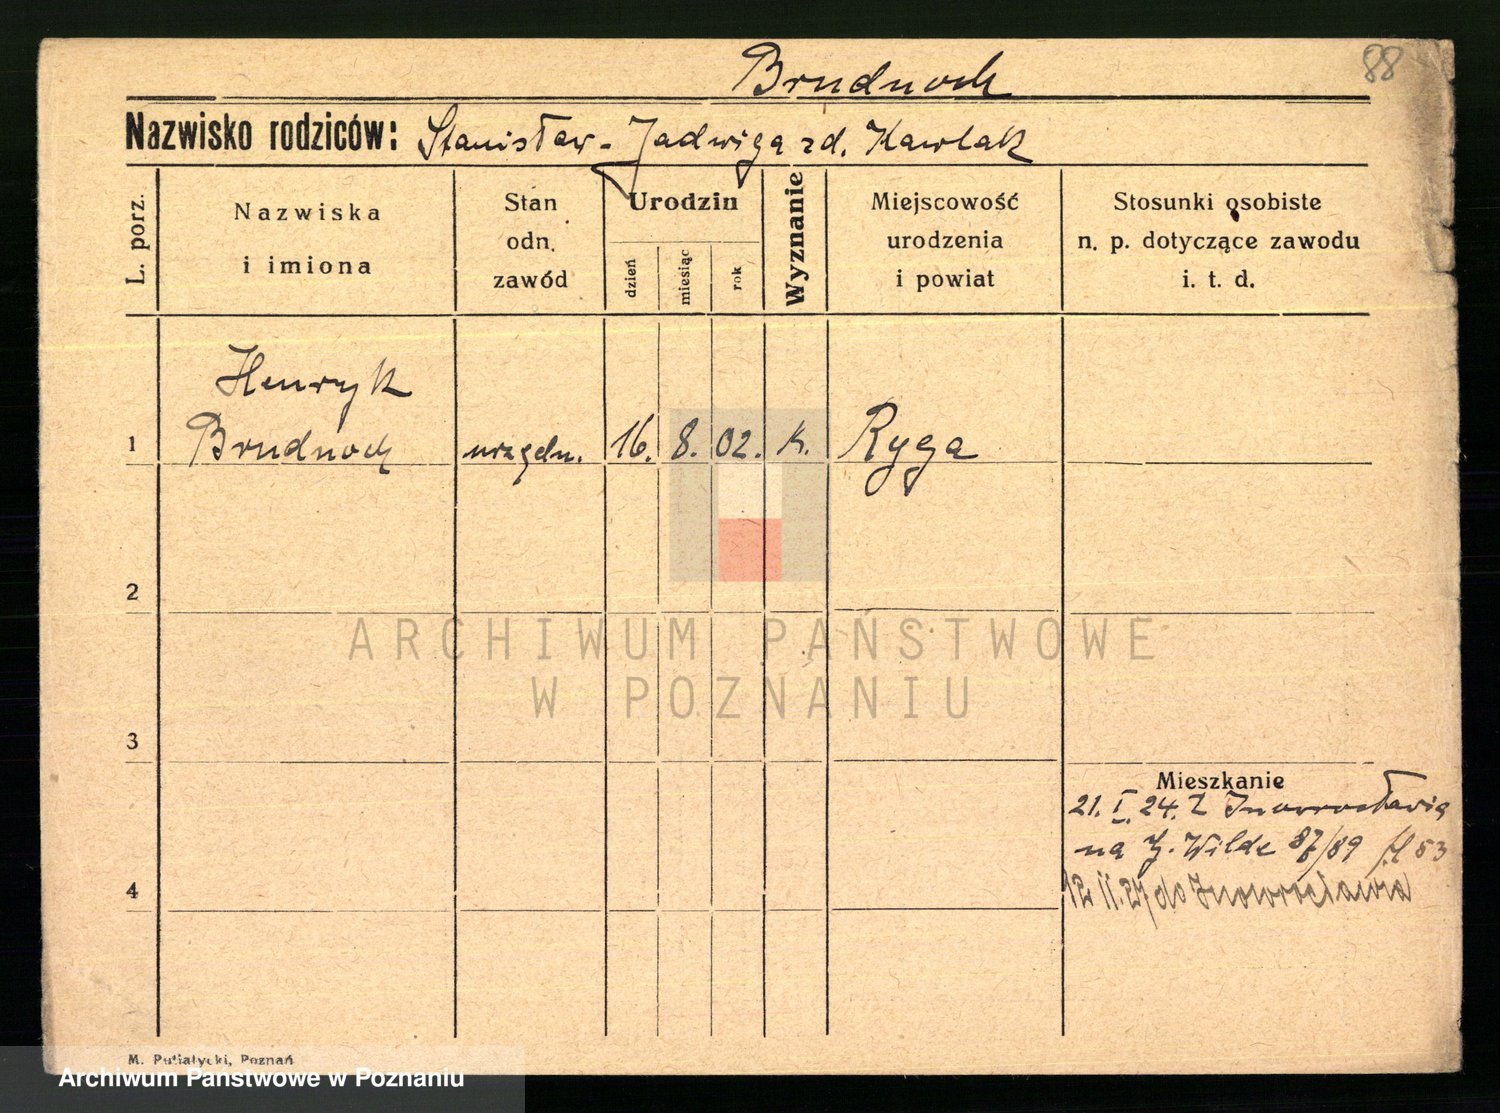 88
Brudnoch
Nazwisko rodziców: Stanisław - Jadwiga zd. Kawlak
L. porz.
Nazwiska
i imiona
Stan
odn.
zawód
Urodzin
dzień
miesiąc
rok
Wyznanie
Miejscowość
urodzenia
i powiat
Stosunki osobiste
n. p. dotyczące zawodu
i. t. d.
Henryk
1 Brudnoch urzędn. 16. 8. 02. k. Ryga
2
ARCHIWUM PAŃSTWOWE
W POZNANIU
3
Mieszkanie
21. I. 24. z Inowrocławia
na G. Wilde 87/89
4
do Inowrocławia
M. Putiatycki, Poznań
Archiwum Państwowe w Poznaniu